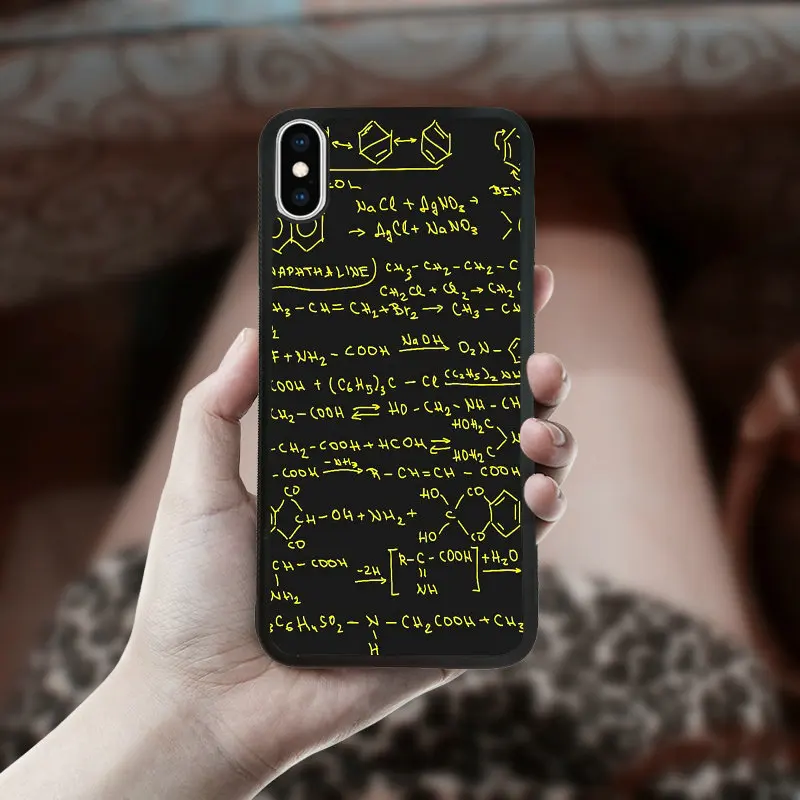 OL
BEN
NaCl + AgNO₃ →
→ AgCl + NaNO₃
NAPHTHALINE)
CH₃-CH₂-CH₂-C
CH₂Cl + Cl₂ → CH₂C
H₃-CH=CH₂+Br₂ → CH₃-CH
2
F+NH₂-COOH NaOH → O₂N-
COOH + (C₆H₅)₃C-Cl (C₂H₅)₂NH
CH₂-COOH ⇄ HO-CH₂-NH-CH
-CH₂-COOH+HCOH ⇄ HOH₂C HOH₂C N
-COOH -NH₃ → R-CH=CH-COOH
CO CH-OH+NH₂+ CO
HO HO C CO CO
CH-COOH -2H → [R-C-COOH] +H₂O →
NH₂ NH
₃C₆H₄SO₂-N-CH₂COOH+CH₃
H